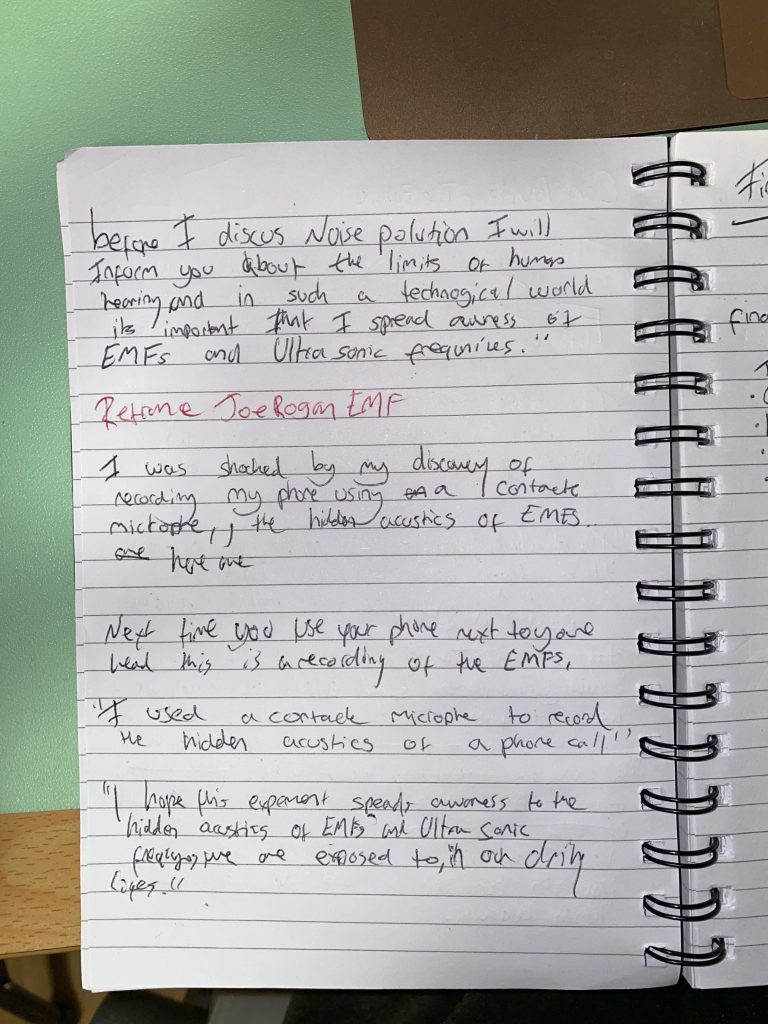 before I discus Noise polution I will
Inform you about the limits of human
hearing and in such a technogical world
its important that I spread awness of
EMFs and Ultra sonic freqnices."
Reframe Joe Rogan EMF
I was shocked by my discovery of
recording my phone using a contacte
microphe, the hidden acustics of EMFs.
are here are
Next time you use your phone next to your
head this is a recording of the EMFs,
"I used a contack microphe to record
the hidden acustics of a phone call"
"I hope this experment spreads awarness to the
hidden acustics of EMFs and Ultra sonic
we are exposed to, in our
lives."
Fi
find